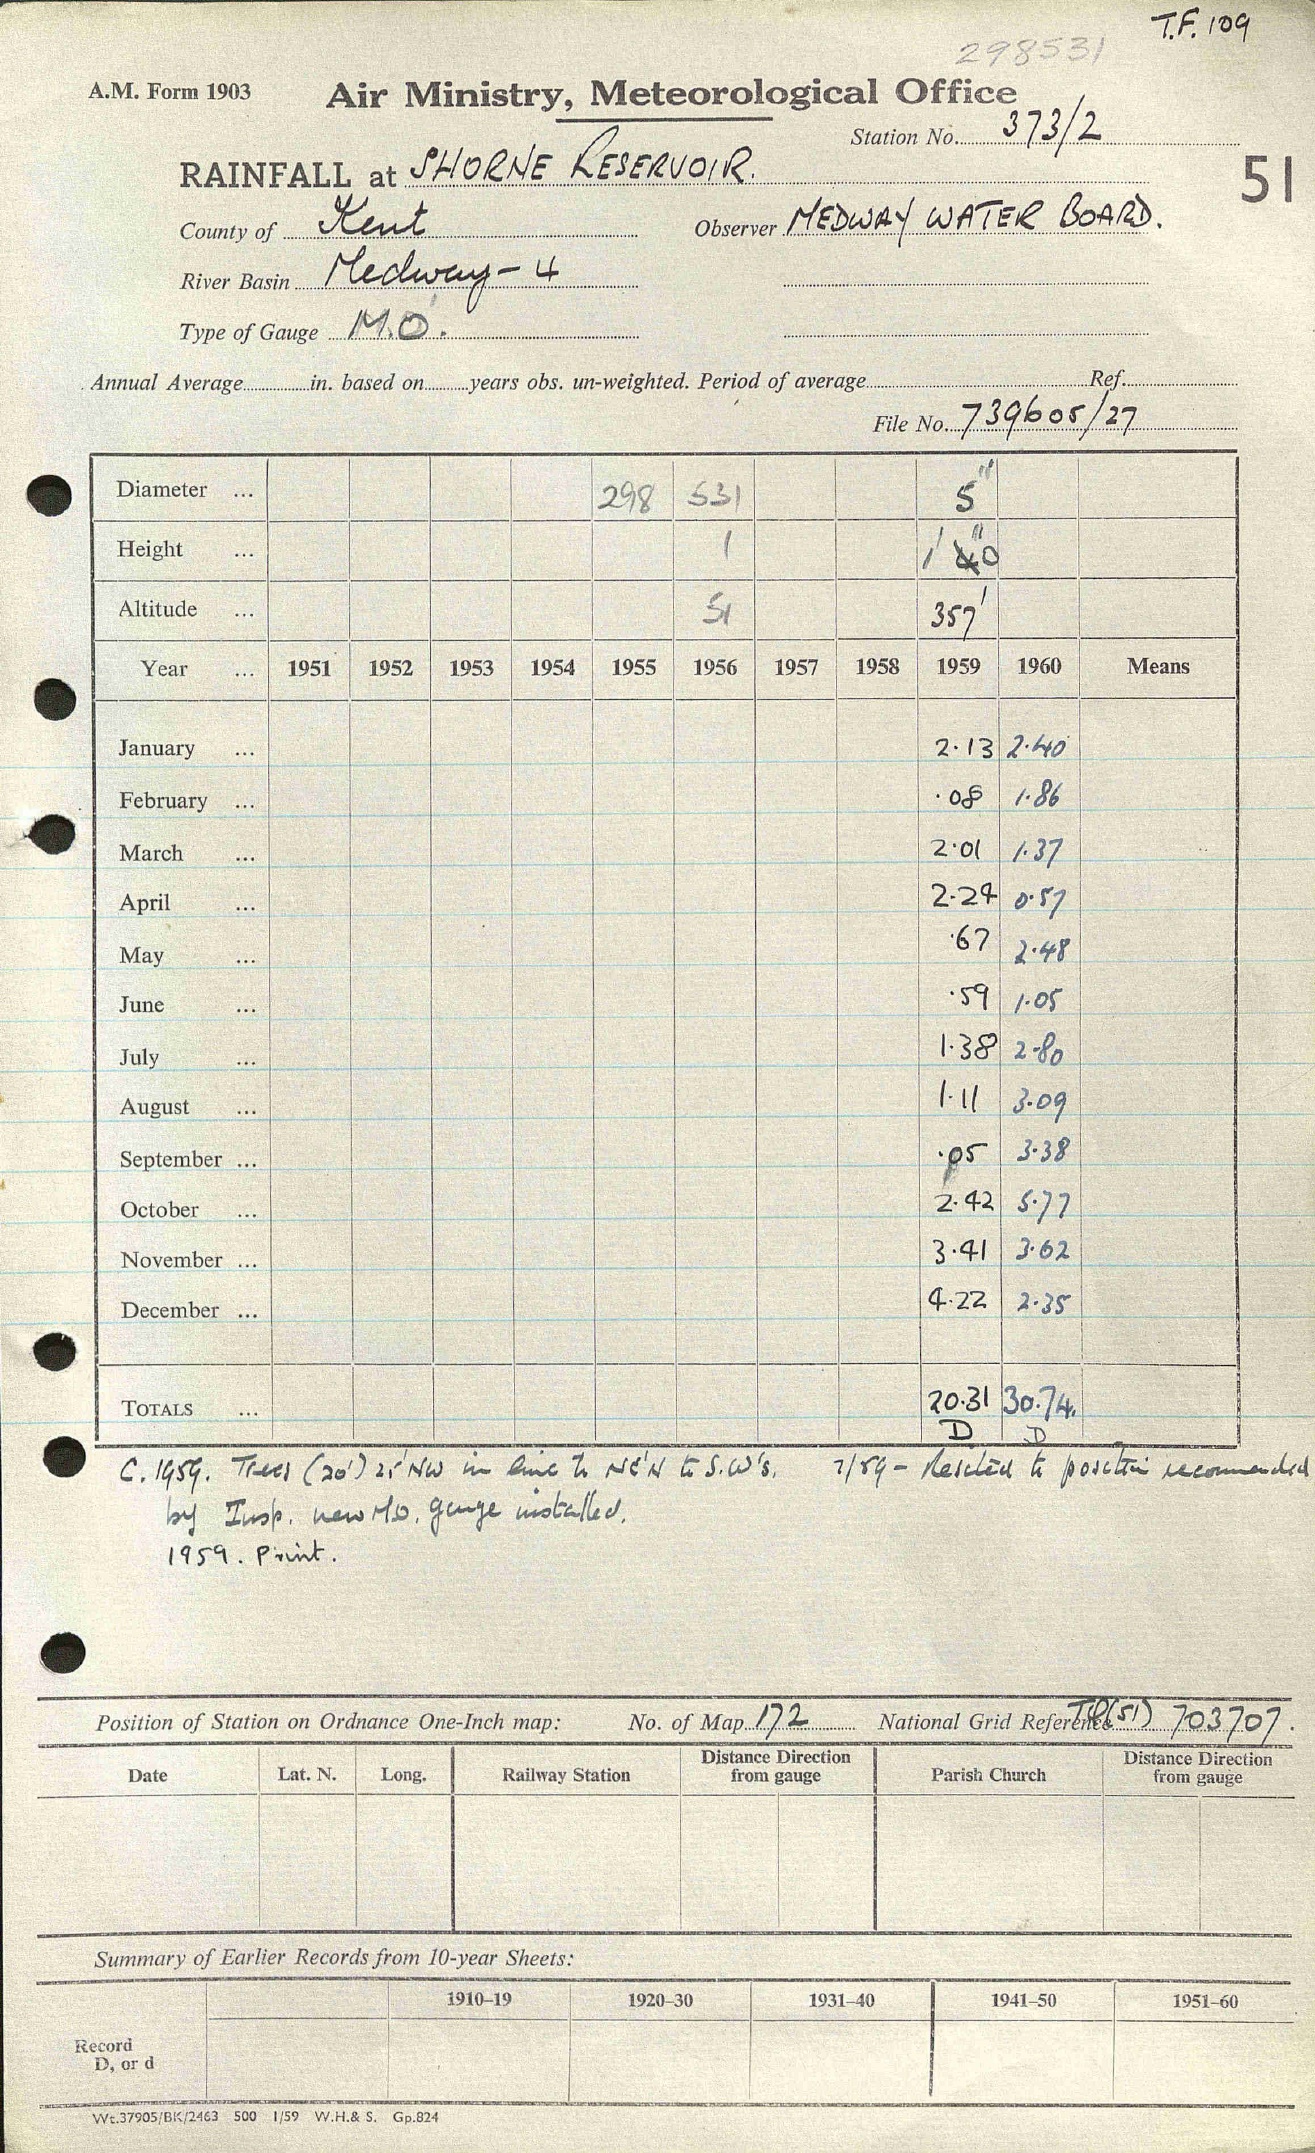 T.F. 109
298531
A.M. Form 1903 Air Ministry, Meteorological Office
Station No. 373/2
RAINFALL at SHORNE RESERVOIR. 51
County of Kent Observer MEDWAY WATER BOARD.
River Basin Medway-4
Type of Gauge M.O.
Annual Average in. based on years obs. un-weighted. Period of average Ref.
File No. 739605/27
Diameter ... 298 531 5"
Height ... 1 1' 0"
Altitude ... 51 357'
Year ... 1951 1952 1953 1954 1955 1956 1957 1958 1959 1960 Means
January ... 2.13 2.40
February ... .08 1.86
March ... 2.01 1.37
April ... 2.24 0.57
May ... .67 2.48
June ... .59 1.05
July ... 1.38 2.80
August ... 1.11 3.09
September ... .05 3.38
October ... 2.42 5.77
November ... 3.41 3.62
December ... 4.22 2.35
TOTALS ... 20.31 30.74.
D D
C. 1959. Trees (20') 25' NW in line to NE'N to S.W's. 7/59 - Resited to position recommended
by Insp. new M.O. gauge installed.
1959. Print.
Position of Station on Ordnance One-Inch map: No. of Map 172 National Grid Reference TQ(51) 703707.
Date Lat. N. Long. Railway Station Distance Direction from gauge Parish Church Distance Direction from gauge
Summary of Earlier Records from 10-year Sheets:
1910–19 1920–30 1931–40 1941–50 1951–60
Record
D, or d
Wt.37905/BK/2463 500 1/59 W.H.& S. Gp.824